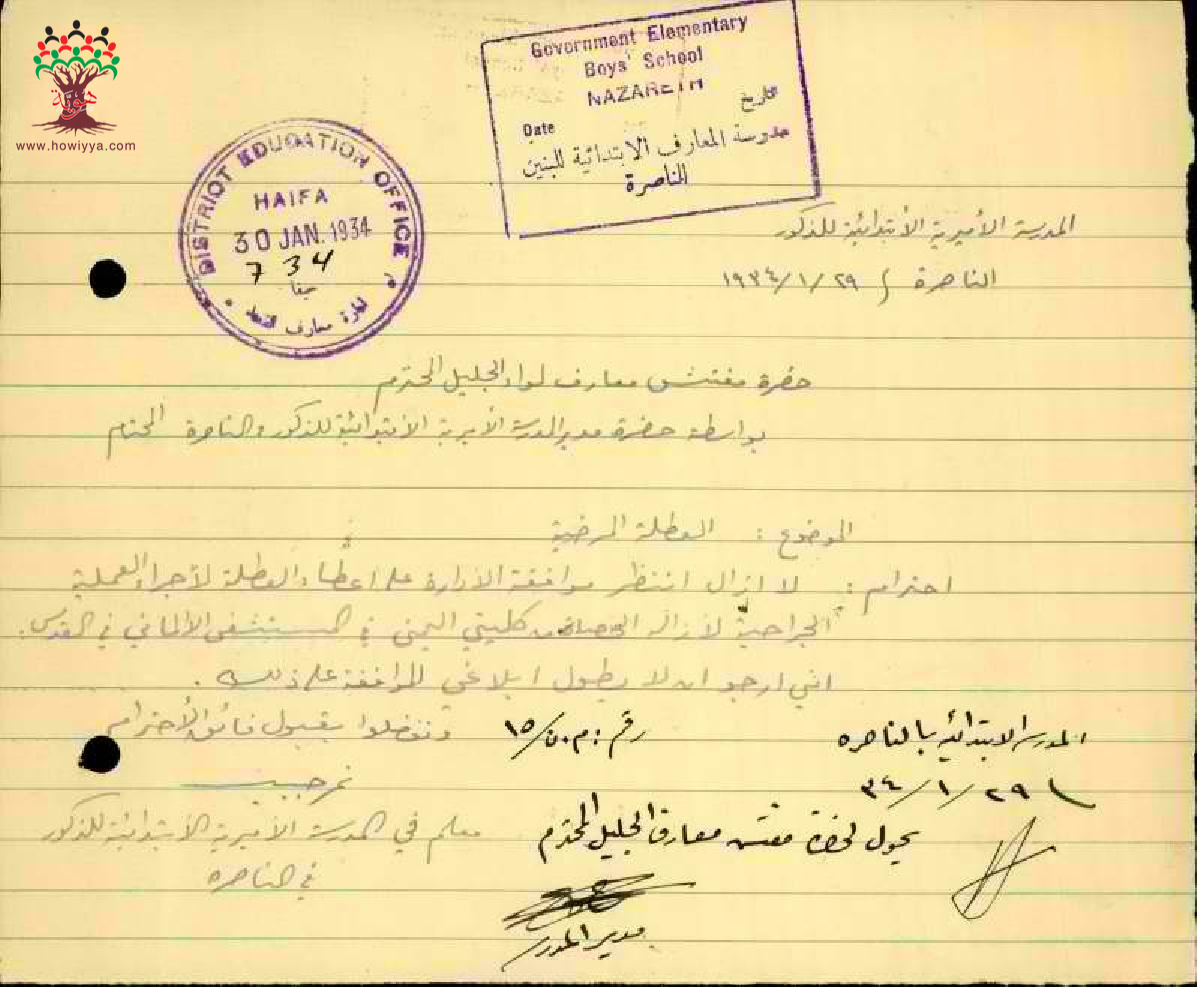 هوية
www.howiyya.com
Government Elementary
Boys' School
NAZARETH
Date تاريخ
مدرسة المعارف الابتدائية للبنين
الناصرة
DISTRICT EDUCATION OFFICE
HAIFA
30 JAN. 1934
734
حيفا
ادارة معارف
المدرسة الأميرية الأبتدائية للذكور
الناصرة ٢٩/١/١٩٣٤
حضرة مفتش معارف لواء الجليل المحترم
بواسطة حضرة مدير المدرسة الأميرية الأبتدائية للذكور بالناصرة المحترم
الموضوع: العطلة المرضية
احترام: لا ازال انتظر موافقة الأدارة على اعطاء العطلة لأجراء العملية
الجراحية لأزالة الحصاة من كليتي اليمنى في المستشفى الألماني في القدس.
اني ارجو ان لا يطول ابلاغي الموافقة على ذلك.
وتفضلوا بقبول فائق الأحترام
نمر حبيب
معلم في المدرسة الأميرية الأبتدائية للذكور
في الناصرة
المدرسة الابتدائية بالناصرة
رقم: م.ن/١٥
٢٩/١/٣٤
يحول لحضرة مفتش معارف الجليل المحترم
مدير المدرسة